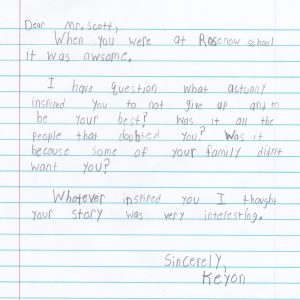 Dear Mr. Scott,
When you were at Rosenow school
it was awsome.
I have question what actually
inspired you to not give up and to
be your best? Was it all the
people that doubted you? Was it
because some of your family didnt
want you?
Whatever inspired you I thought
your story was very interesting.
Sincerely,
Keyon